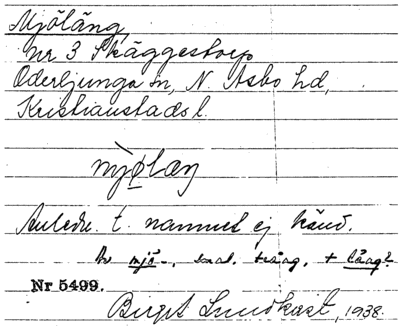 Mjöläng,
nr 3 Skäggestorp
Oderljunga sn, N. Åsbo hd,
Kristianstads l.
Anledn. t. namnet ej känd.
Av mjö-, smal, trång, + läng?
Nr 5499.
Birgit Lundkvist, 1938.